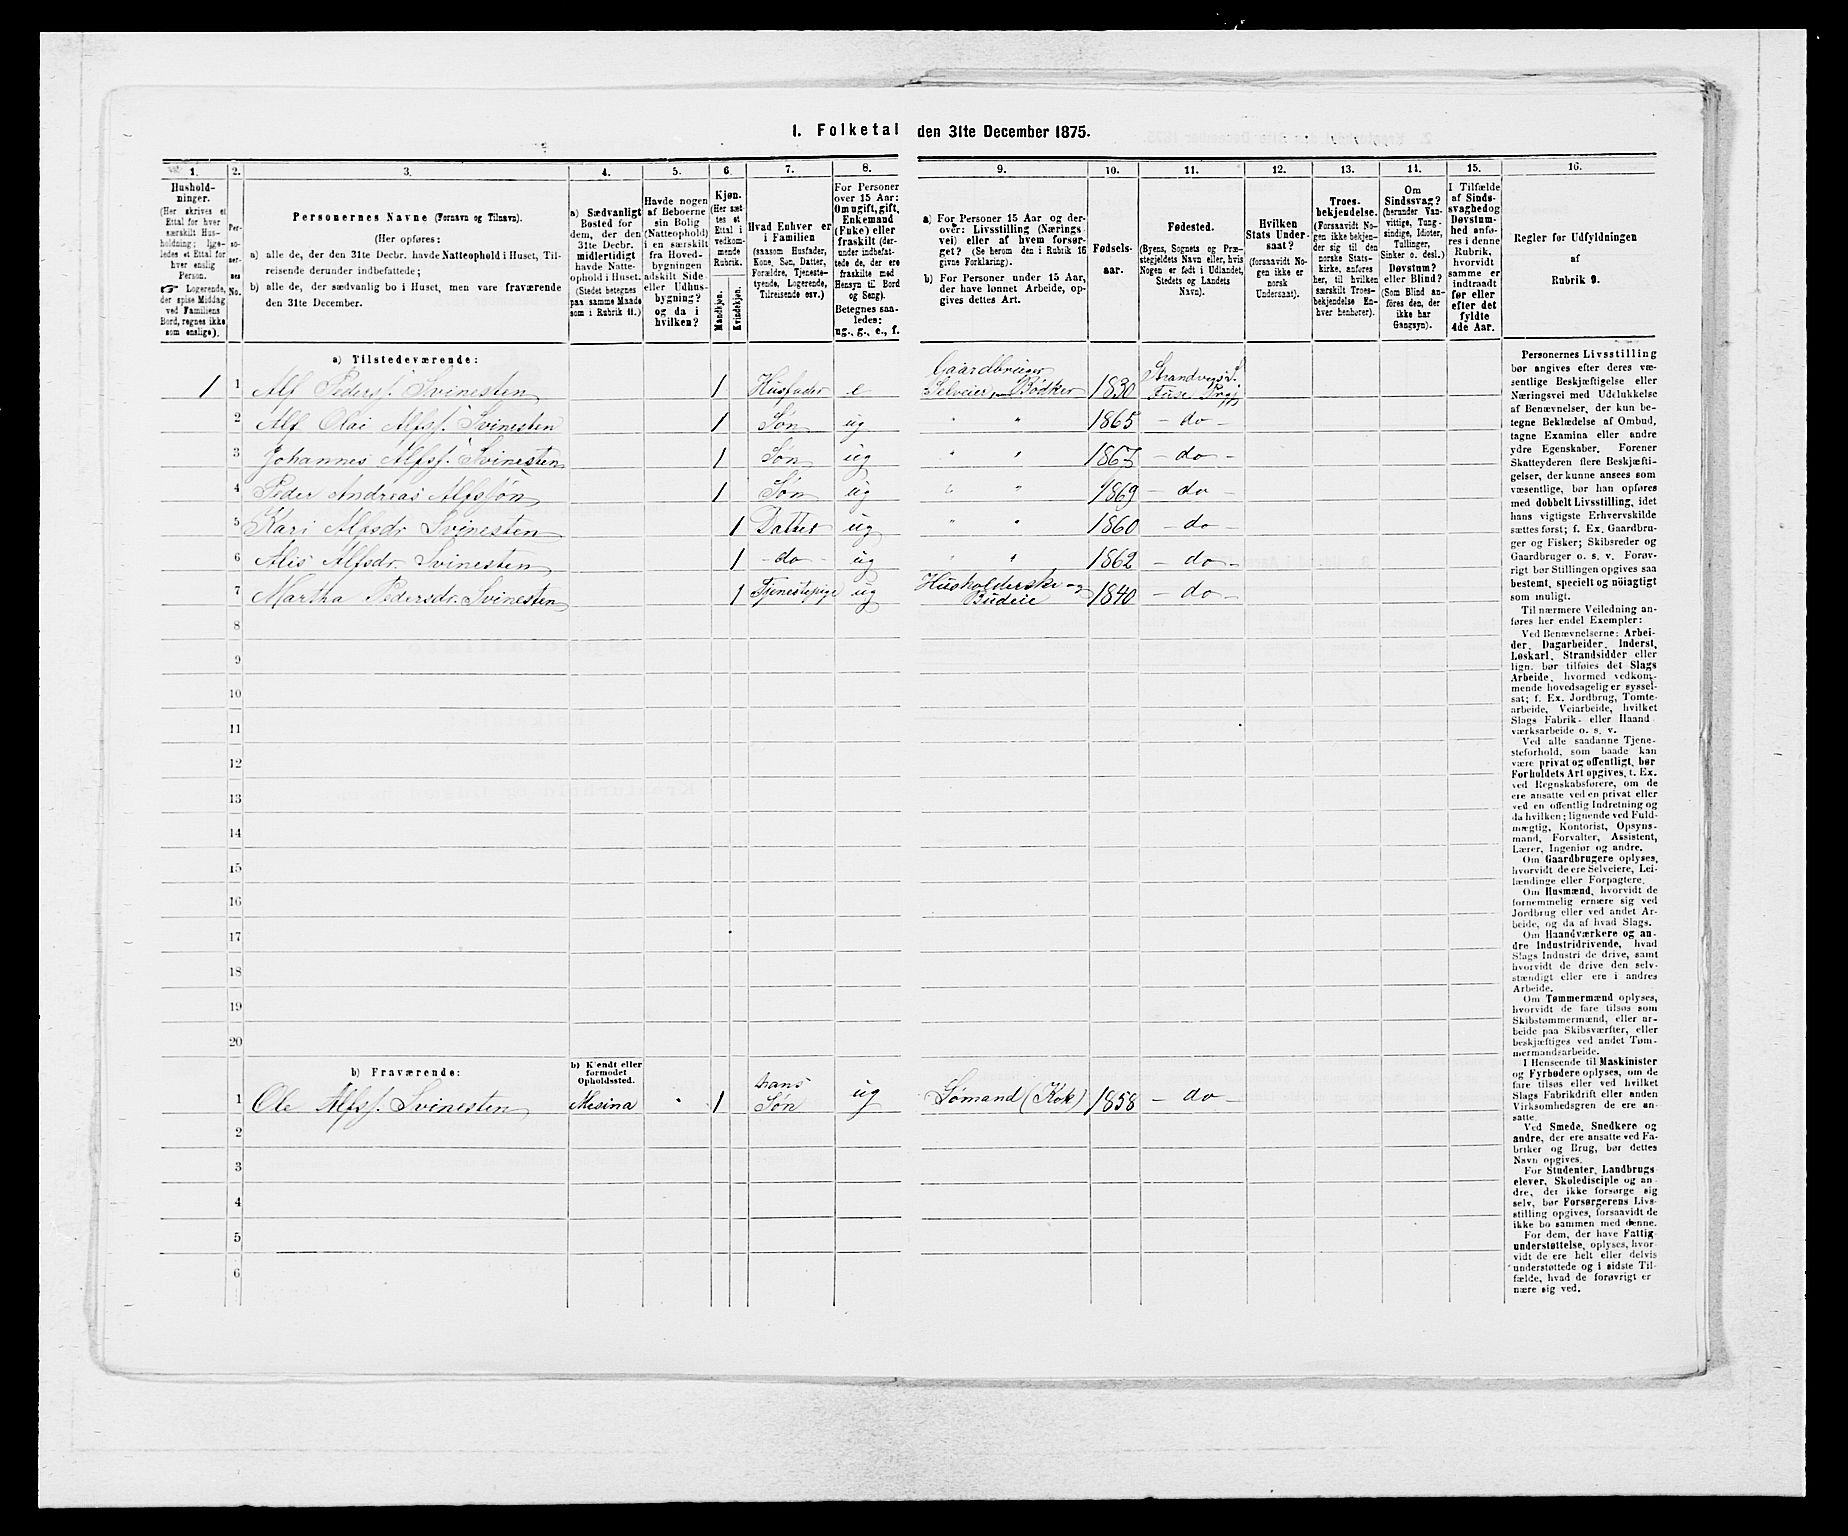 1. Folketal den 31te December 1875.
1.
Hushold-
ninger.
(Her skrives et
Ettal for hver
særskilt Hus-
holdning; lige-
ledes et Ettal for
hver enslig
Person.
☞ Logerende,
der spise Middag
ved Familiens
Bord, regnes ikke
som enslige).
2.
Per-
so-
ner-
nes
No.
3.
Personernes Navne (Fornavn og Tilnavn).
(Her opføres:
a) alle de, der den 31te Decbr. havde Natteophold i Huset, Til-
reisende derunder indbefattede;
b) alle de, der sædvanlig bo i Huset, men vare fraværende
den 31te December.
4.
a) Sædvanligt
Bosted for
dem, der den
31te Decbr.
midlertidigt
havde Natte-
ophold i Huset.
(Stedet betegnes
paa samme Maade
som i Rubrik 11.)
5.
Havde nogen
af Beboerne
sin Bolig
(Natteophold)
i en særskilt
fra Hoved-
bygningen
adskilt Side-
eller Udhus-
bygning?
og da i
hvilken?
6.
Kjøn.
(Her sæt-
tes et
Ettal i
vedkom-
mende
Rubrik.
Mandkjøn.
Kvindekjøn.
7.
Hvad Enhver er
i Familien
(saasom Husfader,
Kone, Søn, Datter,
Forældre, Tjeneste-
tyende, Logerende,
Tilreisende osv.)
8.
For Personer
over 15 Aar:
Om ugift, gift,
Enkemand
(Enke) eller
fraskilt (der-
under indbefat-
tede de, der ere
fraskilte med
Hensyn til Bord
og Seng).
Betegnes saa-
ledes:
ug., g., e., f.
9.
a) For Personer 15 Aar og der-
over: Livsstilling (Nærings-
vei) eller af hvem forsør-
get? (Se herom den i Rubrik 16
givne Forklaring).
b) For Personer under 15 Aar,
der have lønnet Arbeide, op-
gives dettes Art.
10.
Fødsels-
aar.
11.
Fødested.
(Byens, Sognets og Præ-
stegjeldets Navn eller, hvis
Nogen er født i Udlandet,
Stedets og Landets
Navn).
12.
Hvilken
Stats Under-
saat?
(forsaavidt No-
gen ikke er
norsk
Undersaat).
13.
Troes-
bekjendelse.
(Forsaavidt No-
gen ikke bekjen-
der sig til den
norske Stats-
kirke, anføres
her, til hvilken
særskilt Troes-
bekjendelse En-
hver henhører).
14.
Om
Sindssvag?
(herunder Van-
vittige, Tung-
sindige, Idioter,
Tullinger,
Sinker o. desl.)
Døvstum?
eller Blind?
(Som Blind an-
føres den, der
ikke har
Gangsyn).
15.
I Tilfælde
af Sinds-
svaghed og
Døvstum-
hed anfø-
res i denne
Rubrik,
hvorvidt
samme er
indtraadt
før eller
efter det
fyldte
4de Aar.
16.
Regler for Udfyldningen
af
Rubrik 9.
a) Tilstedeværende:
1 1 Alf Peders. Svinesten 1 Husfader e Gaardbruger Selveier, Bødker 1830 Strandvigs S. Fuse Prgj
2 Alf Olai Alfs. Svinesten 1 Søn ug " " 1865 – do –
3 Johannes Alfs. Svinesten 1 Søn ug " " 1867 – do –
4 Peder Andreas Alfssjøn 1 Søn ug " " 1869 – do –
5 Kari Alfsdr Svinesten 1 Datter ug " " 1860 – do –
6 Alis Alfsdr. Svinesten 1 – do ug " " 1862 – do –
7 Martha Pedersdr. Svinesten 1 Tjenestepige ug Husholderske og Budeie 1840 – do –
8
9
10
11
12
13
14
15
16
17
18
19
20
b) Fraværende:
b) Kjendt eller
formodet
Opholdssted.
1 Ole Alfs. Svinesten Mesina " 1 hans Søn ug Sømand (Kok) 1858 – do –
2
3
4
5
6
Personernes Livsstilling
bør angives efter deres væ-
sentlige Beskjæftigelse eller
Næringsvei med Udelukkelse
af Benævnelser, der kun be-
tegne Beklædelse af Ombud,
tagne Examina eller andre
ydre Egenskaber. Forener
Skatteyderen flere Beskjæfti-
gelser, der kunne ansees som
væsentlige, bør han opføres
med dobbelt Livsstilling, idet
hans vigtigste Erhvervskilde
sættes først; f. Ex. Gaardbru-
ger og Fisker; Skibsreder og
Gaardbruger o. s. v. Forøv-
rigt bør Stillingen opgives saa
bestemt, specielt og nöiagtigt
som muligt.
Til nærmere Veiledning an-
føres her endel Exempler:
Ved Benævnelserne: Arbei-
der, Dagarbeider, Inderst,
Løskarl, Strandsidder eller
lign. bør tilføies det Slags
Arbeide, hvormed vedkom-
mende hovedsagelig er syssel-
sat; f. Ex. Jordbrug, Tomte-
arbeide, Veiarbeide, hvilket
Slags Fabrik- eller Haand-
værksarbeide o. s. v.
Ved alle saadanne Tjene-
steforhold, som baade kan
være privat og offentligt, bør
Forholdets Art opgives, t. Ex.
ved Regnskabsførere, om de
ere ansatte ved en privat eller
ved en offentlig Indretning og
da hvilken; lignende ved Fuld-
mægtig, Kontorist, Opsyns-
mand, Forvalter, Assistent,
Lærer, Ingeniør og andre.
Om Gaardbrugere oplyses,
hvorvidt de ere Selveiere, Lei-
lændinge eller Forpagtere.
Om Husmænd, hvorvidt de
fornemmelig ernære sig ved
Jordbrug eller ved andet Ar-
beide, og da af hvad Slags.
Om Haandværkere og an-
dre Industridrivende, hvad
Slags Industri de drive, samt
hvorvidt de drive den selv-
stændigt eller ere i andres
Arbeide.
Om Tømmermænd oplyses,
hvorvidt de fare tilsøs som
Skibstømmermænd, eller ar-
beide paa Skibsværfter, eller
beskjæftiges ved andet Tøm-
mermandsarbeide.
I Henseende til Maskinister
og Fyrbødere oplyses, om de
fare tilsøs eller ved hvilket
Slags Fabrikdrift eller anden
Virksomhedsgren de ere an-
satte.
Ved Smede, Snedkere og
andre, der ere ansatte ved Fa-
briker og Brug, bør dettes
Navn opgives.
For Studenter, Landbrugs-
elever, Skoledisciple og an-
dre, der ikke forsørge sig
selv, bør Forsørgerens Livs-
stilling opgives, forsaavidt de
ikke bo sammen med denne.
For dem, der have Fattig-
understøttelse, oplyses, hvor-
vidt de ere helt eller delvis
understøttede og i sidste Til-
fælde, hvad de forøvrigt er
nære sig ved.